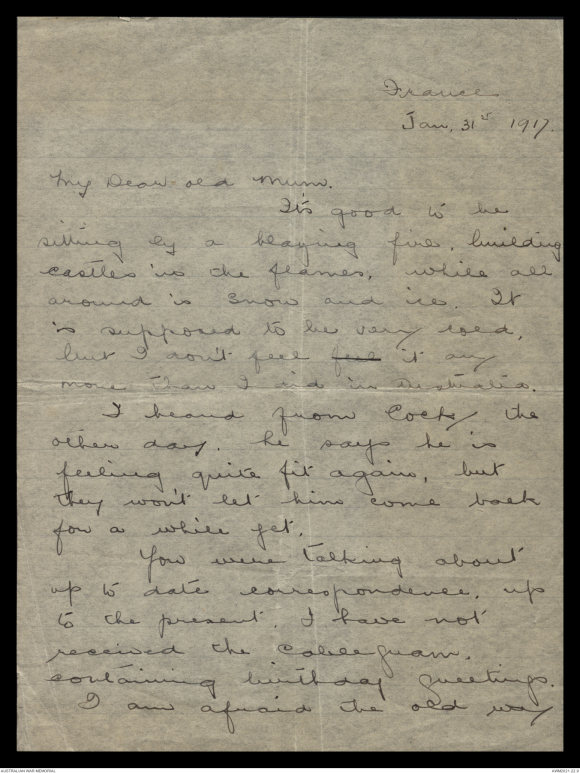 France
Jan, 31st 1917.
My Dear old Mum.
It's good to be
sitting by a blazing fire, building
castles in the flames, while all
around is snow and ice. It
is supposed to be very cold,
but I don't feel feel it any
more than I did in Australia.
I heard from Cocky the
other day. he says he is
feeling quite fit again, but
they won't let him come back
for a while yet.
You were talking about
up to date correspondence, up
to the present, I have not
received the Cablegram,
containing birthday greetings.
I am afraid the old way
AUSTRALIAN WAR MEMORIAL